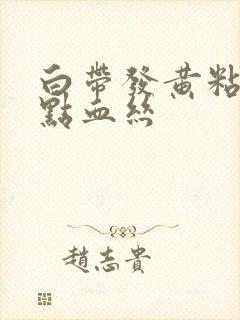 白帶發黃粘
點血絲
趙志貴